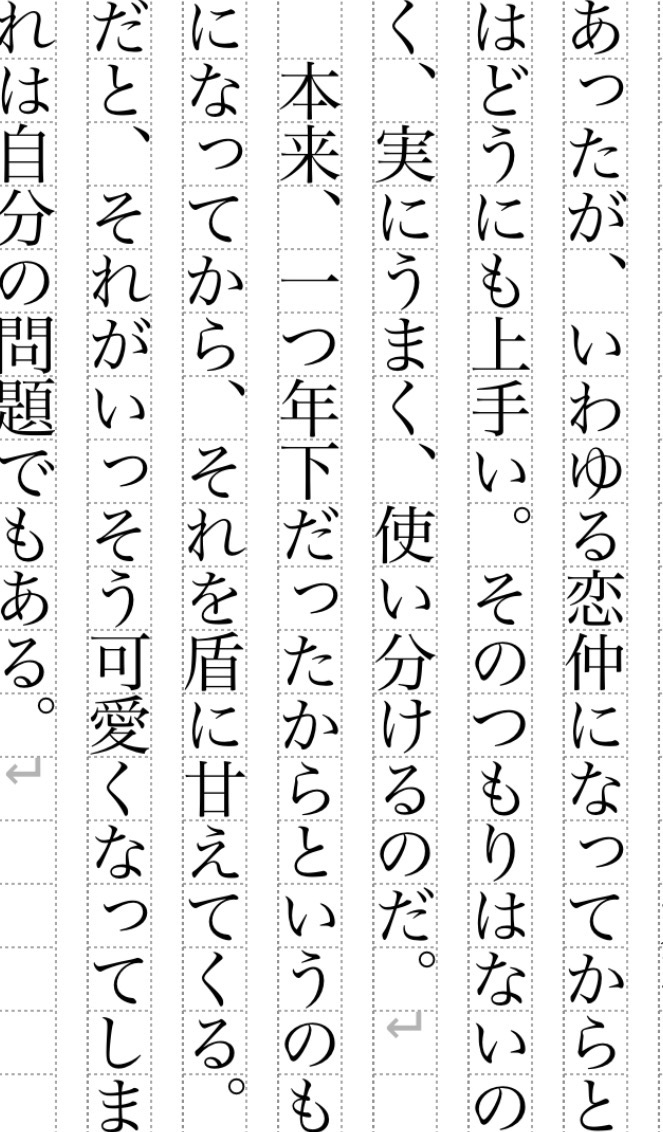 あったが、いわゆる恋仲になってからと
はどうにも上手い。そのつもりはないの
く、実にうまく、使い分けるのだ。
本来、一つ年下だったからというのも
になってから、それを盾に甘えてくる。
だと、それがいっそう可愛くなってしま
れは自分の問題でもある。